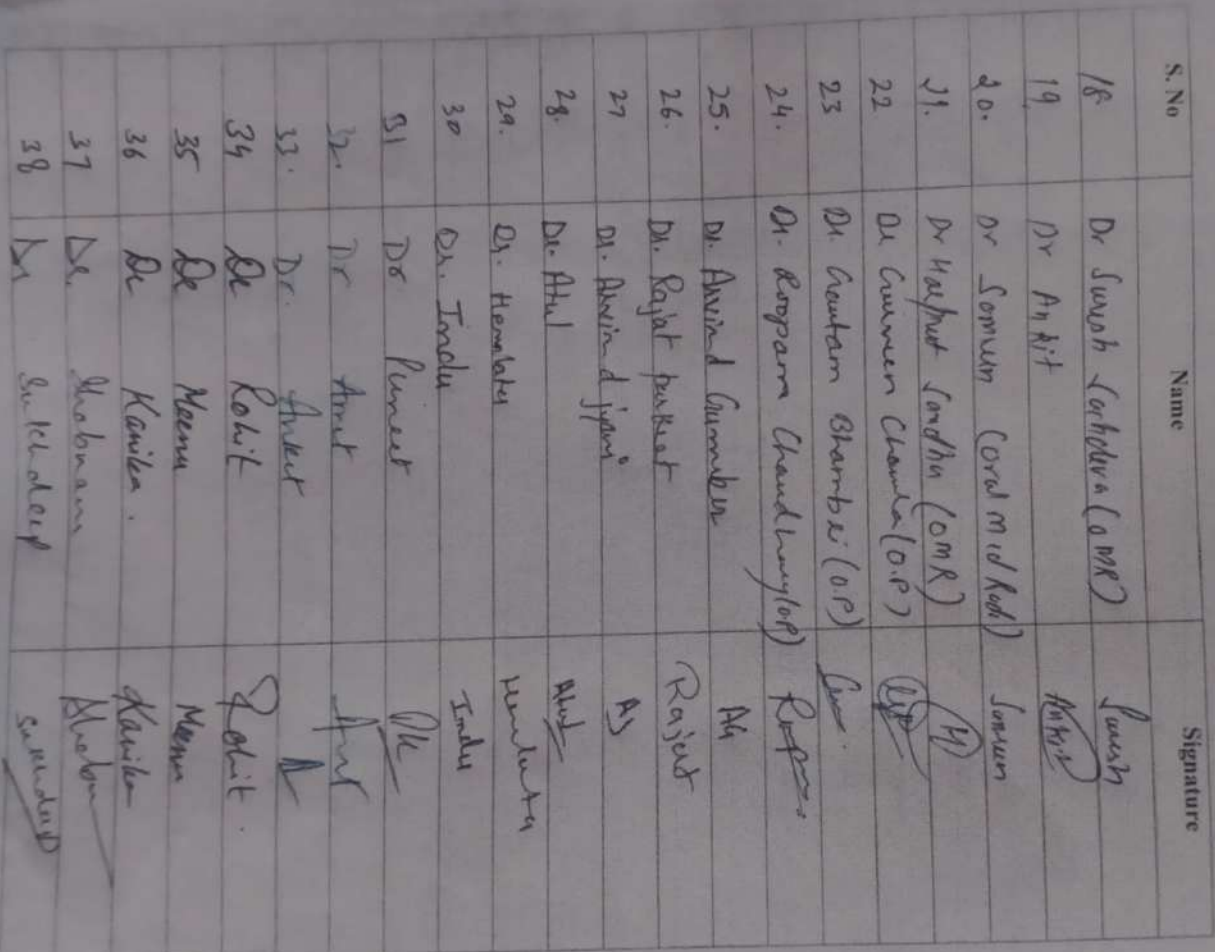 S. No Name Signature
18 Dr Suresh Sachdeva (OMR) Suresh
19 Dr Ankit Ankit
20. Dr Somesh (oral med Radi)
21. Dr Harpreet Sandhu (OMR) H
22 Dr Gurmeen Chawla (O.P)
23 Dr. Gautam Bhambri (O.P)
24. Dr. Roopam Chaudhary (OP)
25. Dr. Arvind Grumber AG
26. Dr. Rajat pareet Rajat
27 Dr. Arvind jyani AJ
28. Dr. Atul Atul
29. Dr. Hemlata Hemlata
30 Dr. Indu Indu
31 Dr Puneet PK
32. Dr Amit
33. Dr. Ankit A
34 Dr Rohit Rohit.
35 Dr Meenu Meenu
36 Dr Kanika. Kanika
37 Dr. Shabnam
38 Dr Sukhdeep Sukhdeep